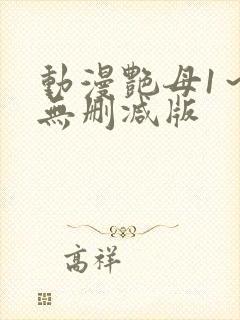 動漫艷母1～
無刪減版
高祥